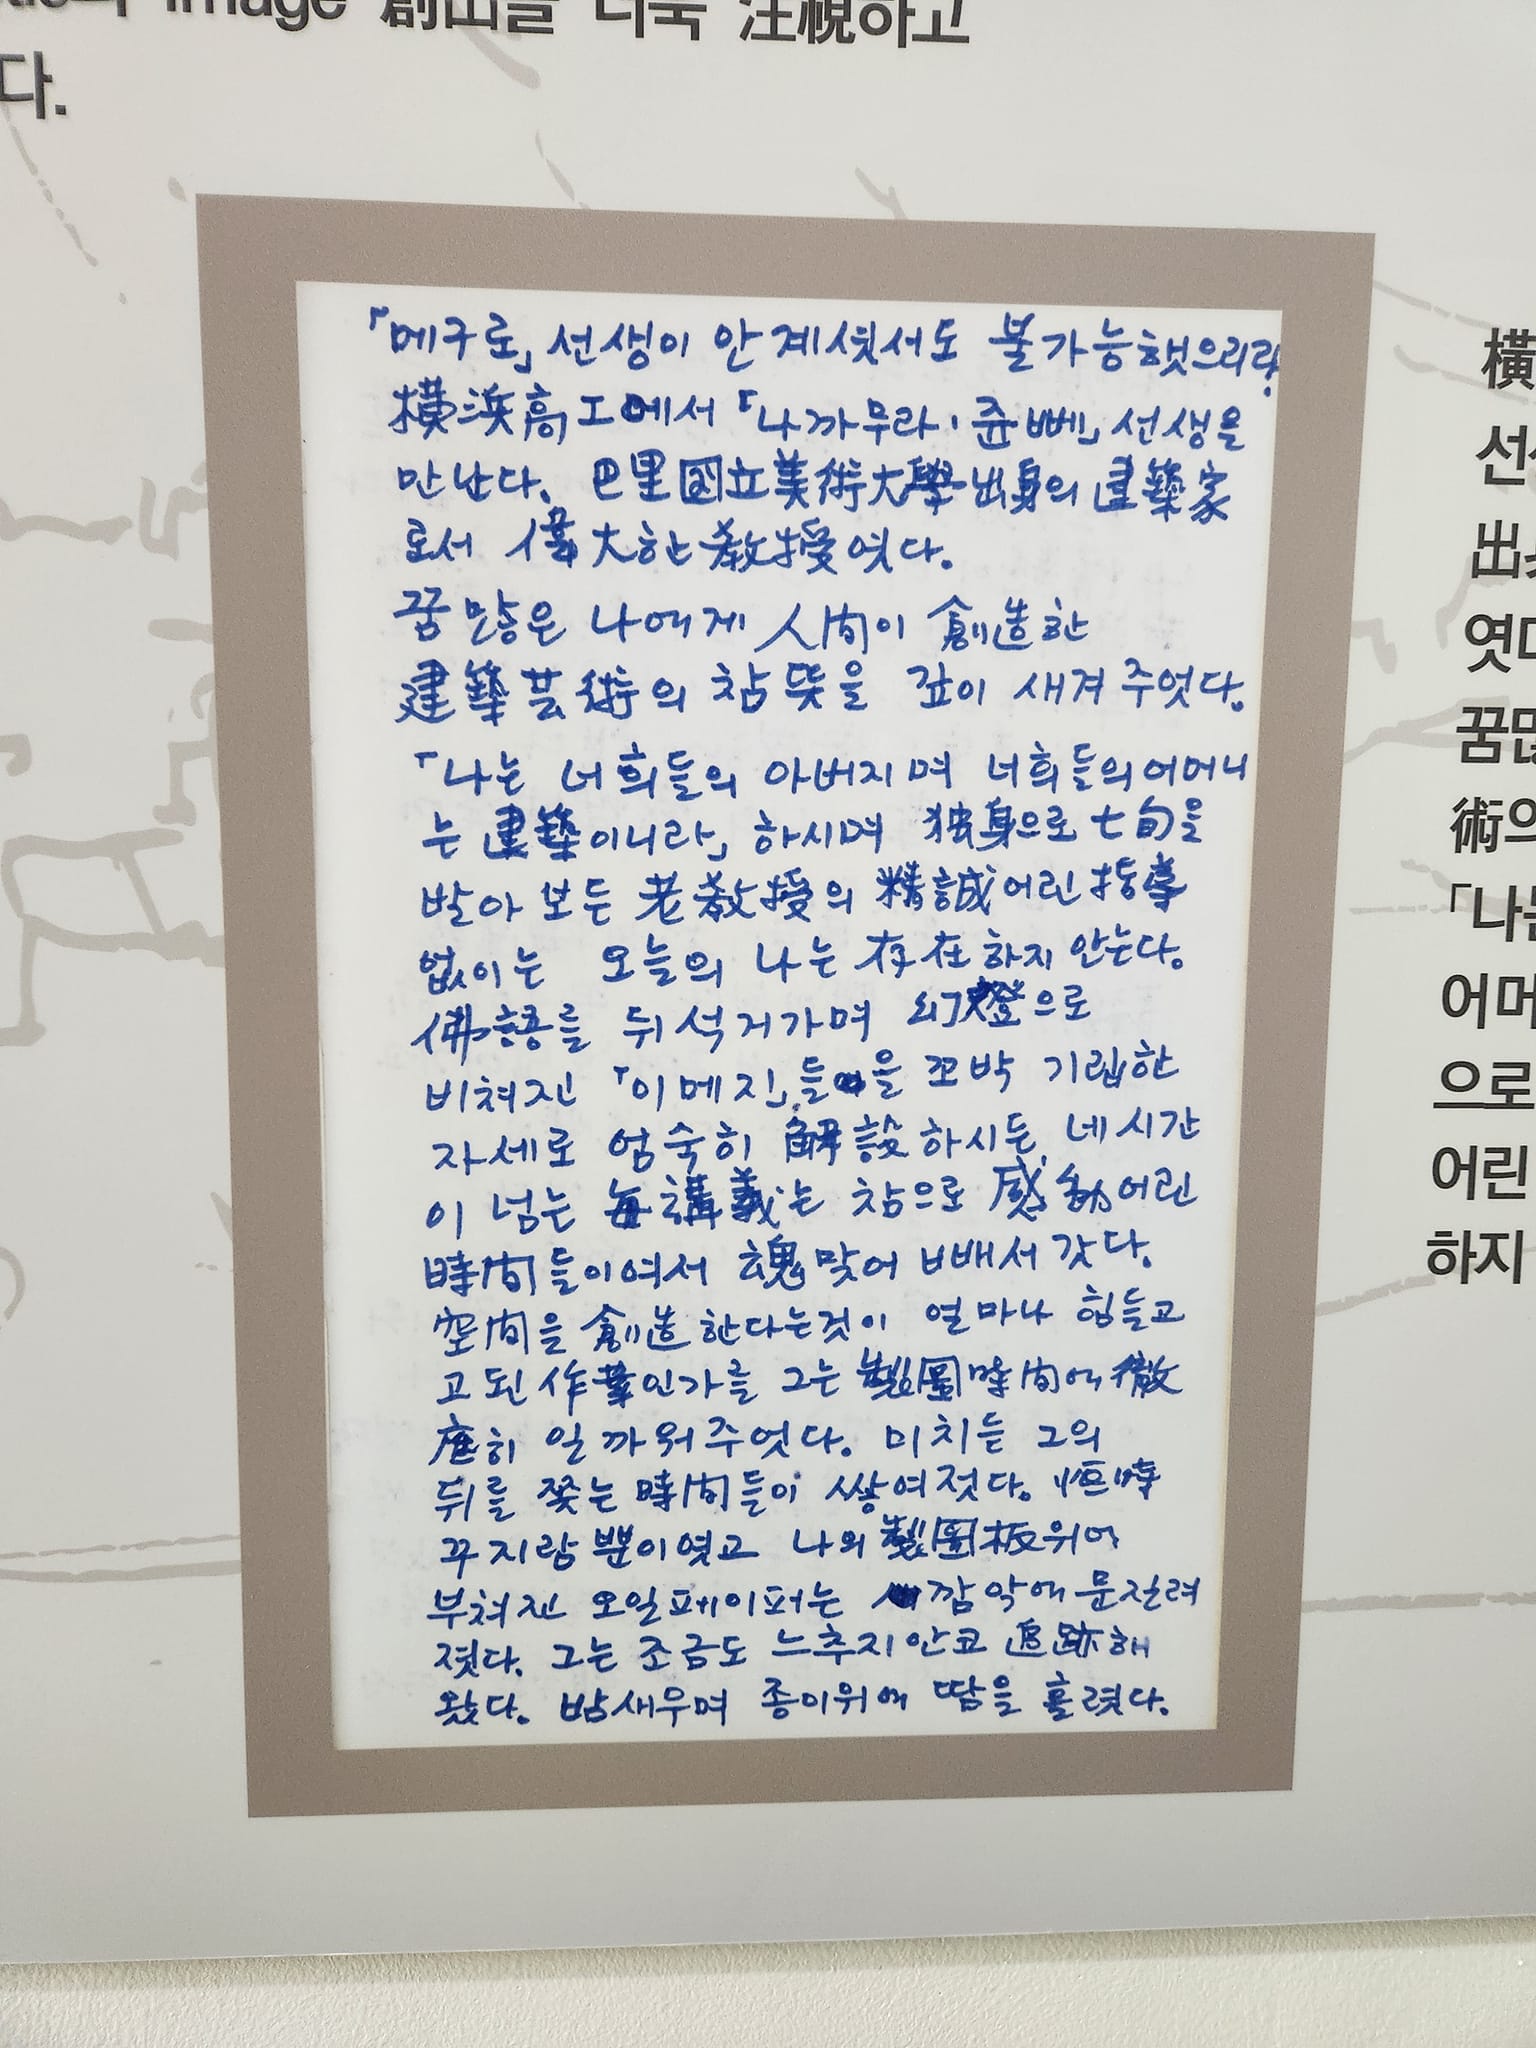 image 創出을 더욱 注視하고
다.
「메구로」 선생이 안 계셧서도 불가능햇으리라.
橫浜高工에서 「나까무라·쥰뻬」 선생을
만난다. 巴里國立美術大學出身의 建築家
로서 偉大한 敎授엿다.
꿈 많은 나에게 人間이 創造한
建築芸術의 참뜻을 깊이 새겨 주엇다.
「나는 너희들의 아버지며 너희들의 어머니
는 建築이니라」 하시며 独身으로 七旬을
발아 보든 老敎授의 精誠어린 指導
없이는 오늘의 나는 存在하지 안는다.
佛語를 뒤석거가며 幻燈으로
비쳐진 「이메진」들을 꼬박 기립한
자세로 엄숙히 解說하시든, 네시간
이 넘는 每講義는 참으로 感動어린
時間들이여서 魂맞어 빼서 갓다.
空間을 創造한다는것이 얼마나 힘들고
고된 作業인가를 그는 製圖時間에 徹
底히 일까워주엇다. 미치듯 그의
뒤를 쫓는 時間들이 쌓여젓다. 恒時
꾸지람 뿐이엿고 나의 製圖板위에
부쳐진 오일페이퍼는 깜악에 문질려
젓다. 그는 조금도 느추지안코 追跡해
왔다. 밤새우며 종이위에 땀을 흘렷다.
橫
선
出
엿
꿈많
術의
「나는
어머
으로
어린
하지